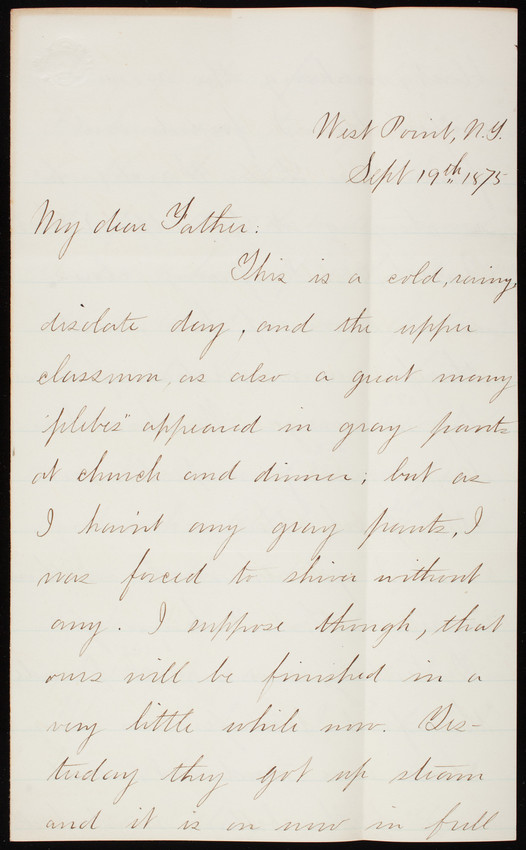 West Point, N.Y.
Sept 19th, 1875
My dear Father:
This is a cold, rainy,
disolate day, and the upper
classmen, as also a great many
"plebes" appeared in gray pants
at church and dinner; but as
I hav'nt any gray pants, I
was forced to shiver without
any. I suppose though, that
ours will be finished in a
very little while now. Yes-
terday they got up steam
and it is on now in full